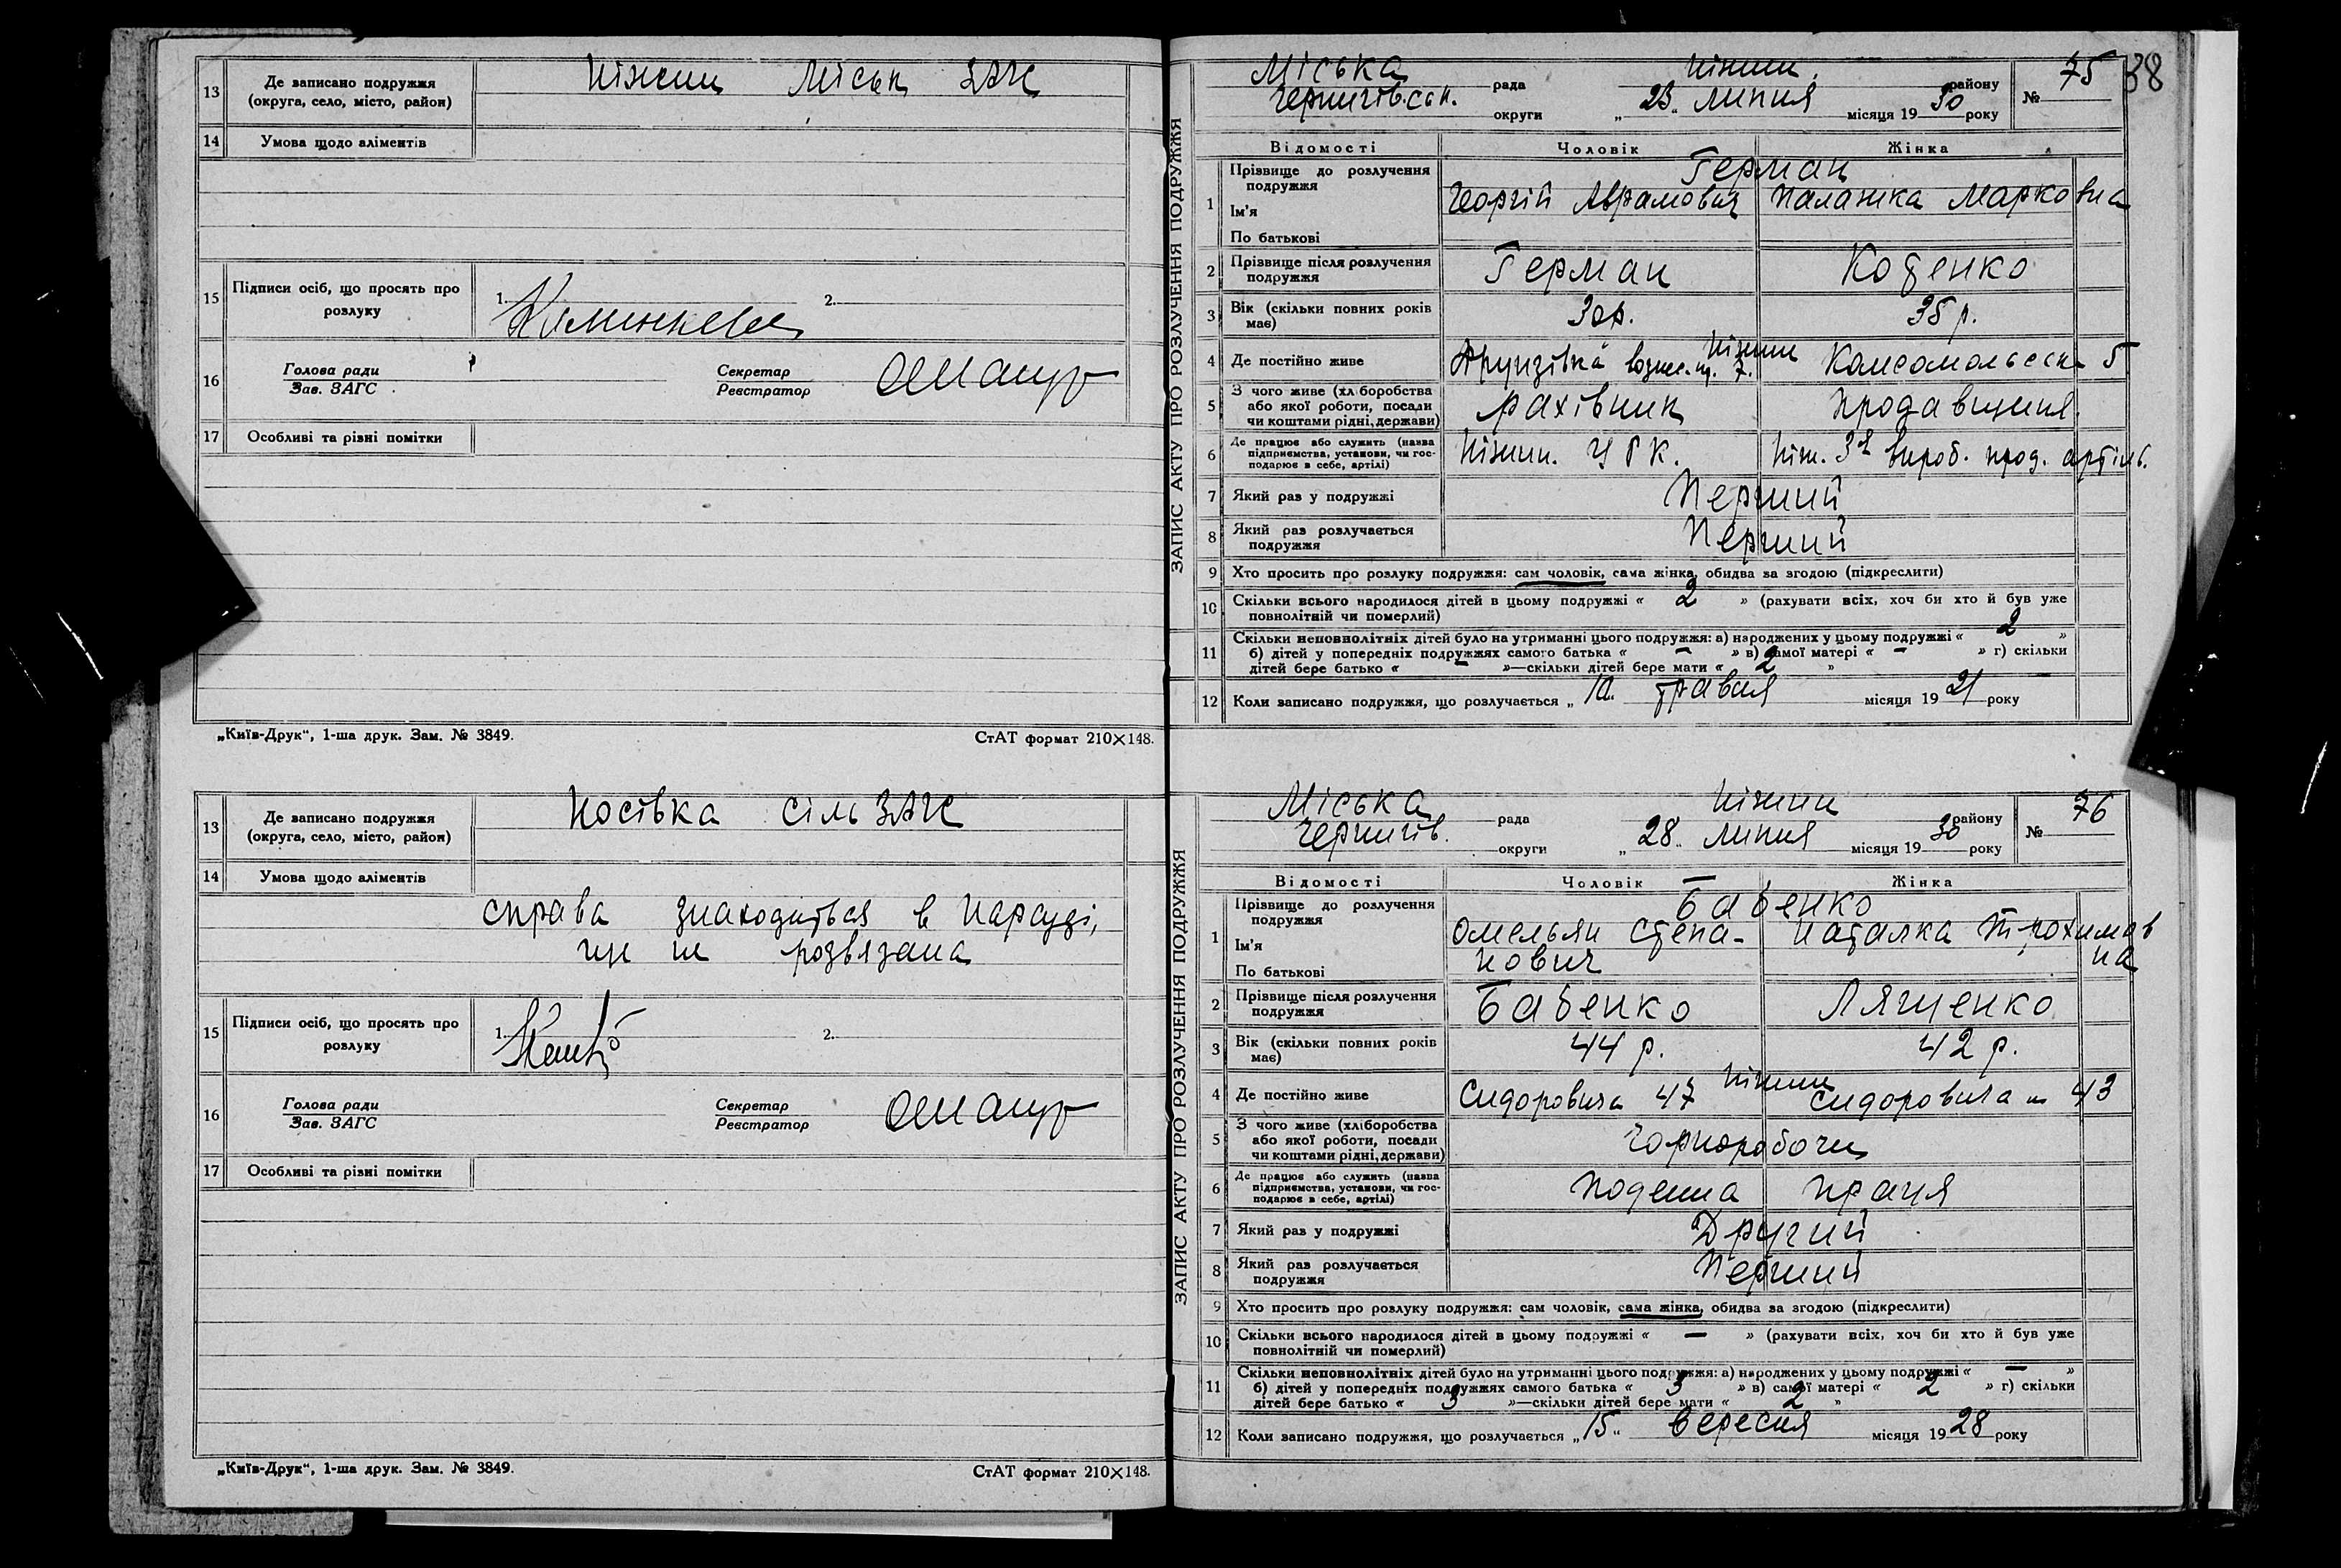 13 Де записано подружжя (округа, село, місто, район) Ніжин Міськ ЗАГС
14 Умова щодо аліментів
15 Підписи осіб, що просять про розлуку 1. 2.
16 Голова ради Зав. ЗАГС Секретар Реєстратор
17 Особливі та різні помітки
„Київ-Друк“, 1-ша друк. Зам. № 3849. СтАТ формат 210×148.
13 Де записано подружжя (округа, село, місто, район) Носівка сіль ЗАГС
14 Умова щодо аліментів
справа знаходиться в Нарсуді,
ще не розвязана
15 Підписи осіб, що просять про розлуку 1. 2.
16 Голова ради Зав. ЗАГС Секретар Реєстратор
17 Особливі та різні помітки
„Київ-Друк“, 1-ша друк. Зам. № 3849. СтАТ формат 210×148.
38
ЗАПИС АКТУ ПРО РОЗЛУЧЕННЯ ПОДРУЖЖЯ
Міська рада Ніжин району № 75
округи „23„ липня місяця 1930 року
Відомості Чоловік Жінка
1 Прізвище до розлучення подружжя Герман
Ім'я Георгій Абрамович Палажка Марковна
По батькові
2 Прізвище після розлучення подружжя Герман Коденко
3 Вік (скільки повних років має) 30р. 35 р.
4 Де постійно живе Ніжин 7. 5
5 З чого живе (хліборобства або якої роботи, посади чи коштами рідні, держави) рахівник продавщиця
6 Де працює або служить (назва підприємства, установи, чи господарює в себе, артілі) Ніжин. Ніж. вироб. прод. артіль.
7 Який раз у подружжі Перший
8 Який раз розлучається подружжя Перший
9 Хто просить про розлуку подружжя: сам чоловік, сама жінка, обидва за згодою (підкреслити)
10 Скільки всього народилося дітей в цьому подружжі « 2 » (рахувати всіх, хоч би хто й був уже повнолітній чи померлий)
11 Скільки неповнолітніх дітей було на утриманні цього подружжя: а) народжених у цьому подружжі « 2 »
б) дітей у попередніх подружжях самого батька « — » в) самої матері « — » г) скільки
дітей бере батько « — »—скільки дітей бере мати « 2 »
12 Коли записано подружжя, що розлучається „ 10 травня місяця 1921 року
ЗАПИС АКТУ ПРО РОЗЛУЧЕННЯ ПОДРУЖЖЯ
Міська рада Ніжин району № 76
Чернигів. округи „28„ липня місяця 1930 року
Відомості Чоловік Жінка
1 Прізвище до розлучення подружжя Бабенко
Ім'я Омельян Степа- Наталка Трохимов
По батькові нович на
2 Прізвище після розлучення подружжя Бабенко Лященко
3 Вік (скільки повних років має) 44 р. 42 р.
4 Де постійно живе Сидоровича 47 Ніжин Сидоровича 43
5 З чого живе (хліборобства або якої роботи, посади чи коштами рідні, держави) Чорноробочи
6 Де працює або служить (назва підприємства, установи, чи господарює в себе, артілі) Поденна праця
7 Який раз у подружжі Другий
8 Який раз розлучається подружжя Перший
9 Хто просить про розлуку подружжя: сам чоловік, сама жінка, обидва за згодою (підкреслити)
10 Скільки всього народилося дітей в цьому подружжі « — » (рахувати всіх, хоч би хто й був уже повнолітній чи померлий)
11 Скільки неповнолітніх дітей було на утриманні цього подружжя: а) народжених у цьому подружжі « — »
б) дітей у попередніх подружжях самого батька « 3 » в) самої матері « 2 » г) скільки
дітей бере батько « 3 »—скільки дітей бере мати « 2 »
12 Коли записано подружжя, що розлучається „15„ вересня місяця 1928 року